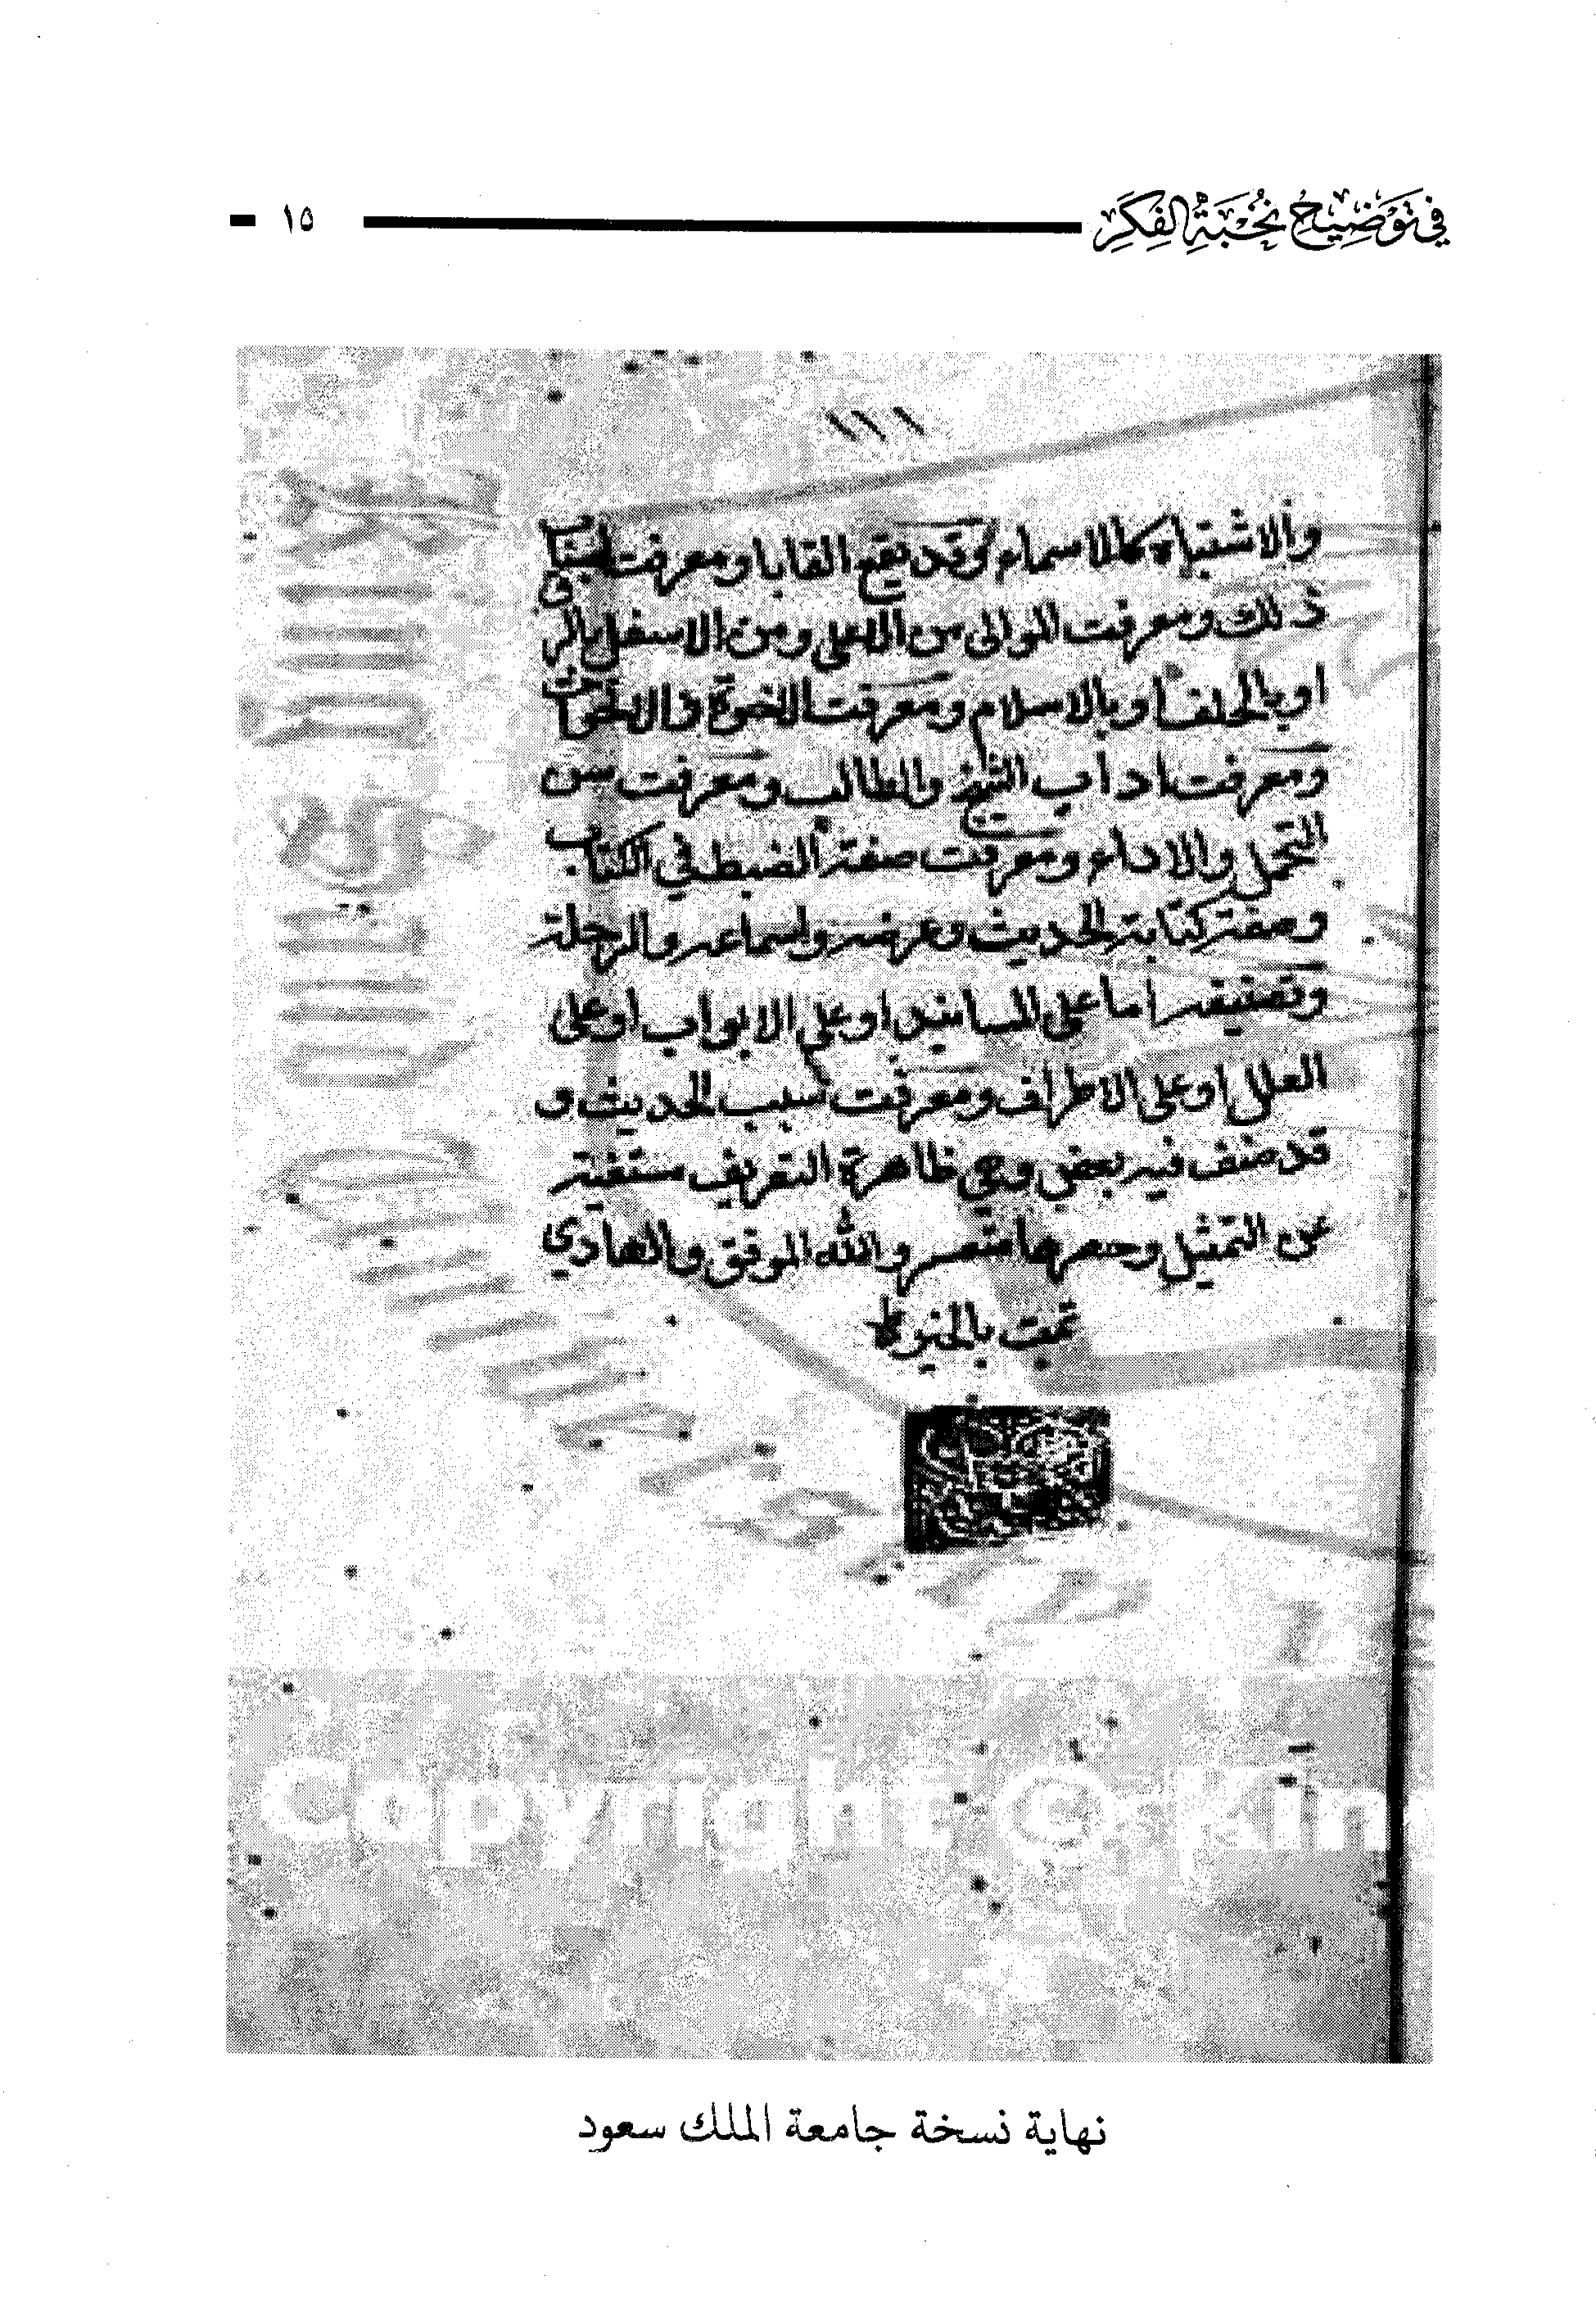 في توضيح نخبة الفكر
١٥
١١١
والاشتباه كالاسماء وقد يقع القابا ومعرفت اسباب
ذلك ومعرفت الموالى من الاعلى ومن الاسفل بالرق
او بالحلف او بالاسلام ومعرفت الاخوة والاخوات
ومعرفت اداب الشيخ والطالب ومعرفت سن
التحمل والاداء ومعرفت صفة الضبط في الكتاب
وصفة كتابة الحديث وعرضه ولسماعه والرحلة
وتصنيفه اما على المسانيد او على الابواب او على
العلل او على الاطراف ومعرفت سبب الحديث و
قد صنف فيه بعض وهي ظاهرة التعريف مستغنية
عن التمثيل وحصرها متعسر والله الموفق والهادي
تمت بالخير
Copyright © Kin
نهاية نسخة جامعة الملك سعود